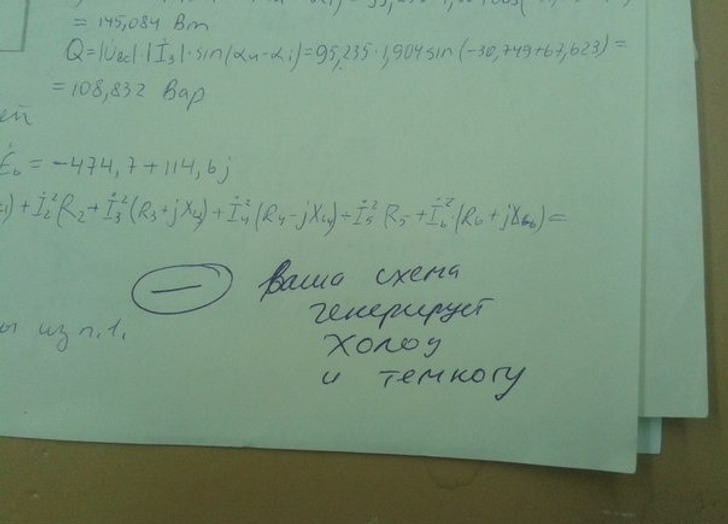 = 145,084 Вт
Q=|Uec|·|İ₃|·sin(αu-αi)=95,235·1,904 sin(-30,749+67,623)=
=108,832 Вар
ей
Ė₆ = -474,7+114,6j
)+İ₂²R₂+İ₃²(R₃+jX₄)+İ₄²(R₄-jX₄)+İ₅²R₅+İ₆²·(R₆+jX₆)=
— Ваша схема
генерирует
холод
и темноту
ы из п.1.